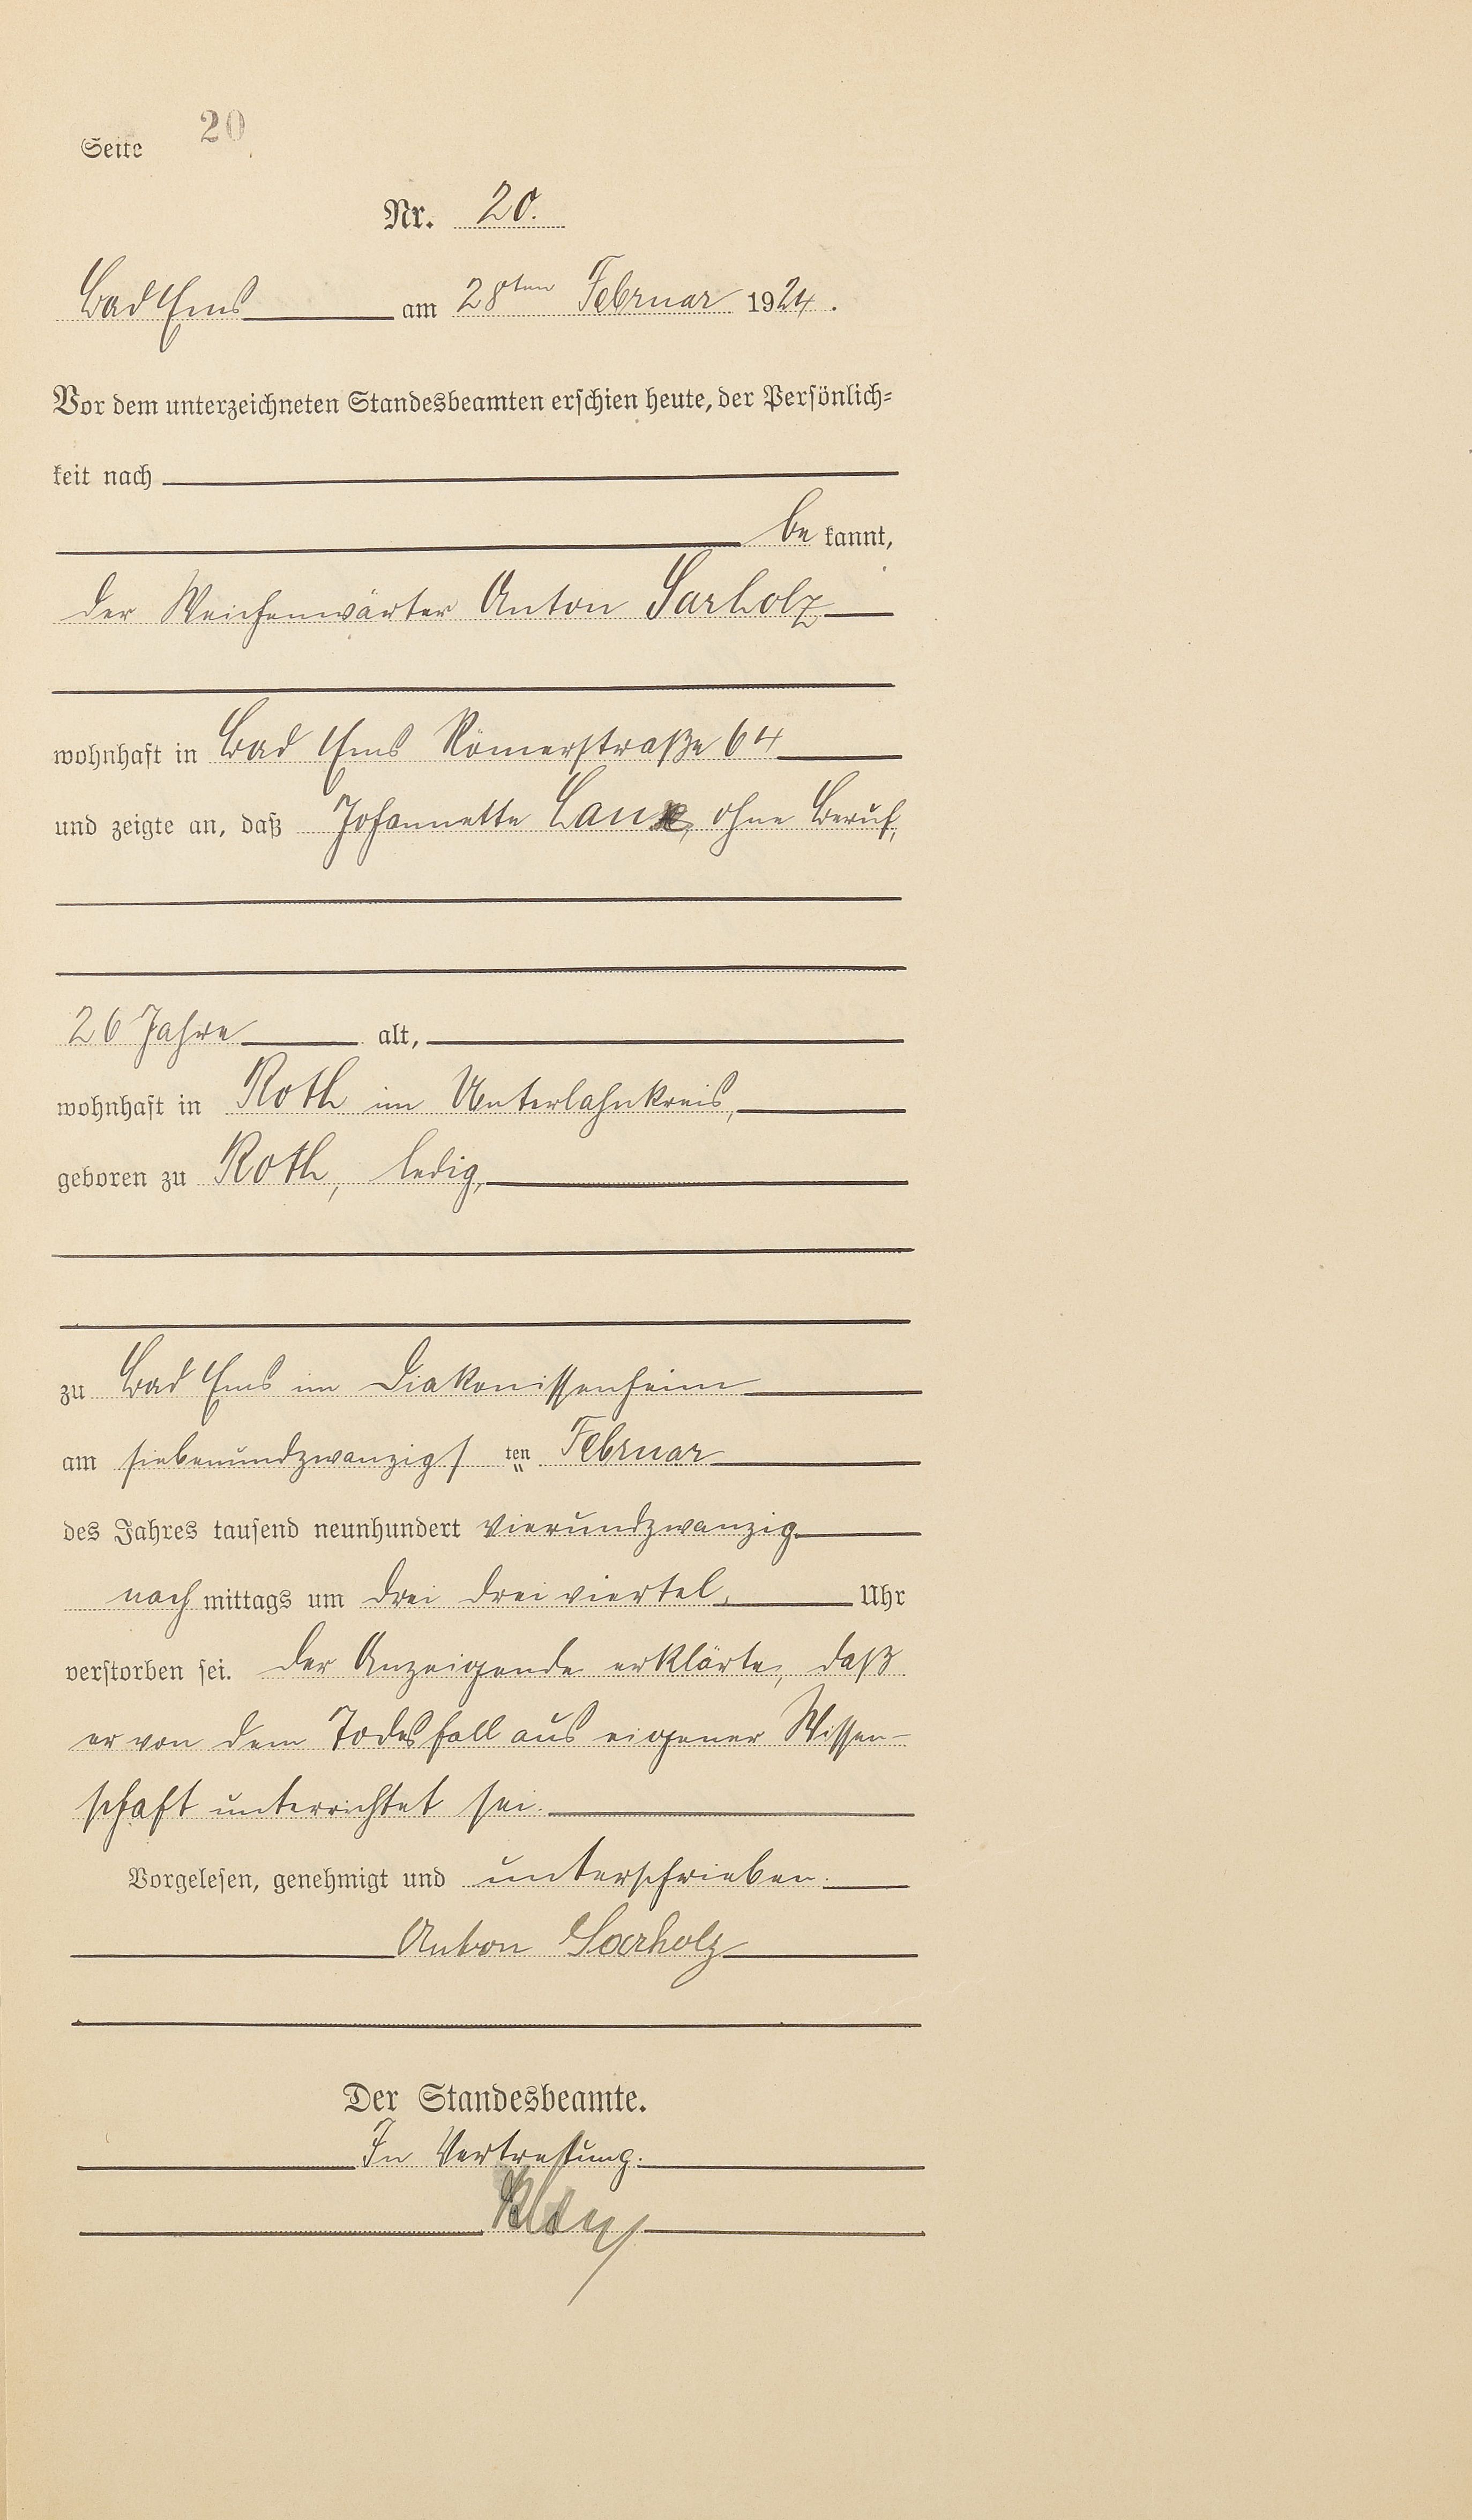 Seite 20
Nr. 20.
Bad Ems am 28ten Februar 1924.
Vor dem unterzeichneten Standesbeamten erschien heute, der Persönlich-
keit nach
be kannt,
der Weichenwärter Anton Sarholz
wohnhaft in Bad Ems Römerstraße 64
und zeigte an, daß Johannette ohne Beruf,
26 Jahre alt,
wohnhaft in Roth im Unterlahnkreis,
geboren zu Roth, ledig,
zu Bad Ems im Diakonissenheim
am siebenundzwanzigs ten Februar
des Jahres tausend neunhundert vierundzwanzig
nach mittags um drei dreiviertel, Uhr
verstorben sei. Der Anzeigende erklärte, daß
er von dem Todesfall aus eigener Wissen-
schaft unterrichtet sei.
Vorgelesen, genehmigt und unterschrieben.
Anton Sarholz
Der Standesbeamte.
In Vertretung.